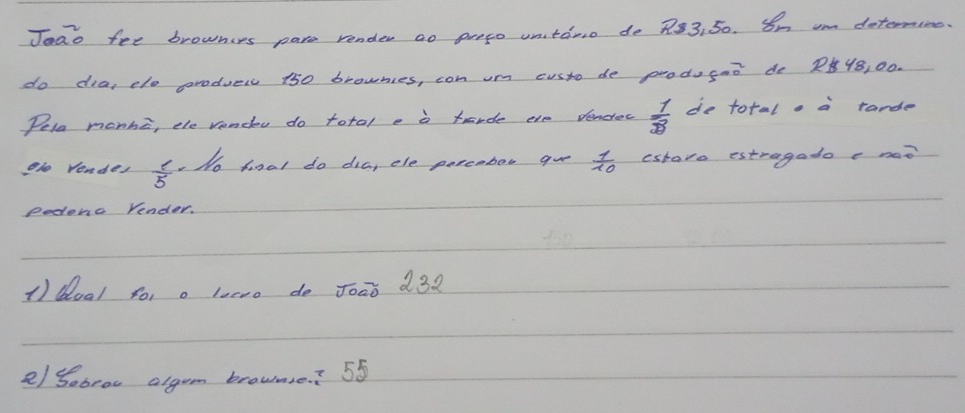 João fez brownies para vender ao preço unitário de R$3,50. Em um determina-
do dia, ele produziu 150 brownies, con um custo de produção de R$48,00.
Pela manhã, ele vendeu do total e à tarde ele vendeu 1/3 de total e à tarde
ele vendeu 1/5. No final do dia, ele percebeu que 1/10 estava estragado e não
poderia vender.
1) Qual foi o lucro de João 232
2) Sobrou algum brownie? 55